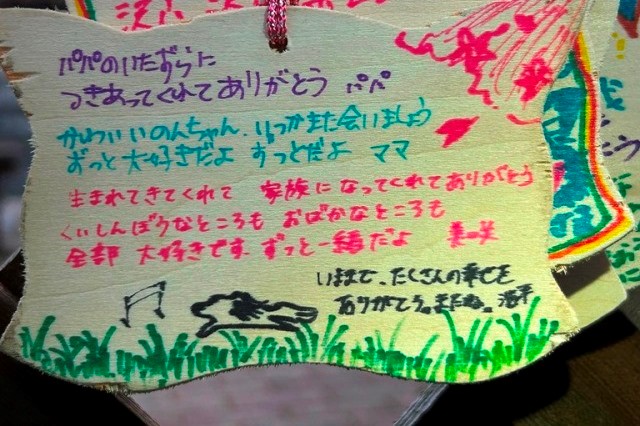 パパのいたずらに
つきあってくれてありがとう パパ
かわいいのんちゃん、いつかまた会いましょう
ずっと大好きだよ ずっとだよ ママ
生まれてきてくれて 家族になってくれてありがとう
くいしんぼうなところも おばかなところも
全部 大好きです。ずっと一緒だよ 美咲
いままで、たくさんの幸せを
ありがとう。またね。